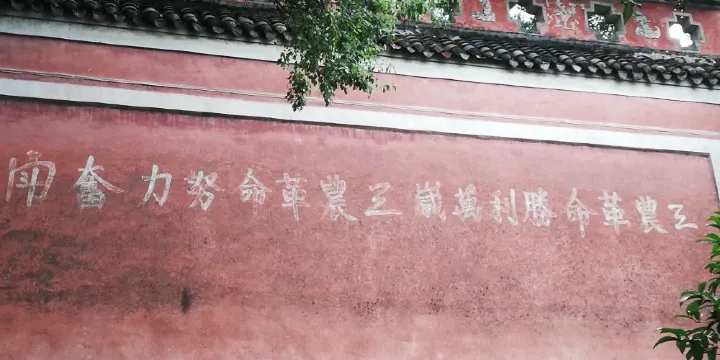 工農革命勝利萬歲工農革命努力奮鬥